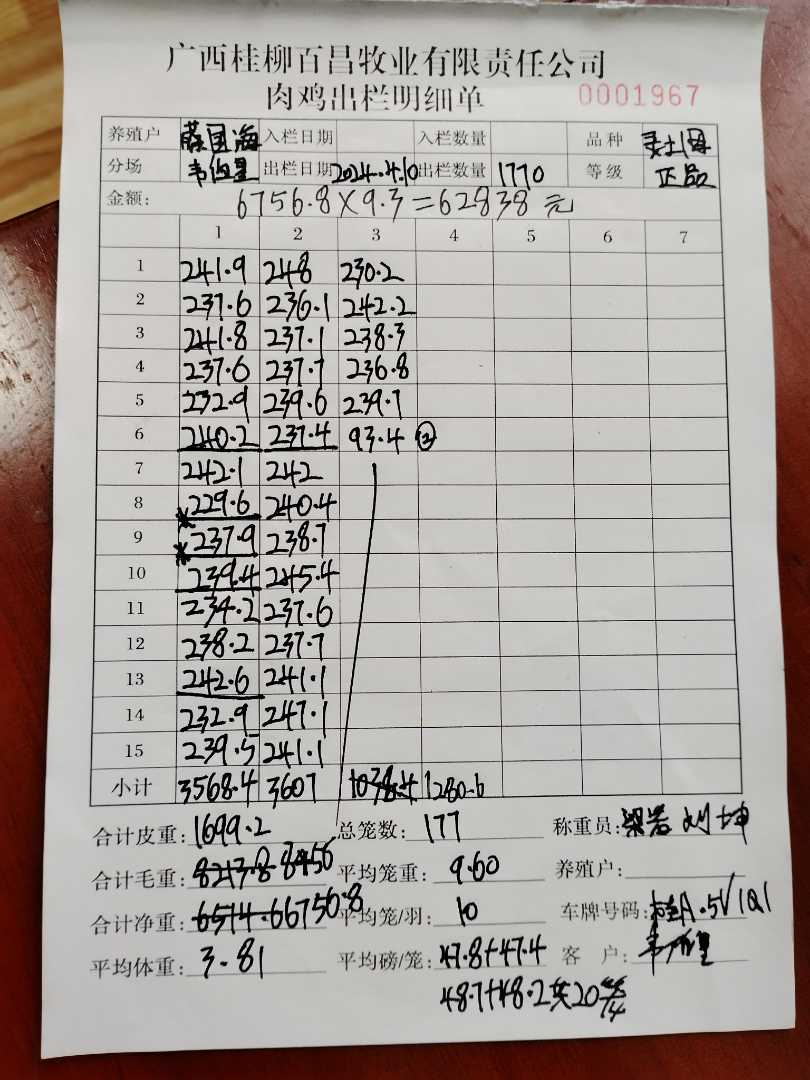 广西桂柳百昌牧业有限责任公司
肉鸡出栏明细单 0001967
养殖户 滕国海 入栏日期 入栏数量 品种
分场 出栏日期 2024.4.10 出栏数量 1770 等级 正品
金额: 6756.8×9.3=62838元
1 2 3 4 5 6 7
1 241.9 248 230.2
2 237.6 236.1 242.2
3 241.8 237.1 238.3
4 237.6 237.7 236.8
5 232.9 239.6 239.7
6 240.2 237.4 93.4 ⑫
7 242.1 242
8 229.6 240.4
9 237.9 238.7
10 239.4 245.4
11 234.2 237.6
12 238.2 237.7
13 242.6 241.1
14 232.9 247.1
15 239.5 241.1
小计 3568.4 3607 1038.4 1280.6
合计皮重: 1699.2 总笼数: 177 称重员:
合计毛重: 8213.8 8456 平均笼重: 9.60 养殖户:
合计净重: 6514.6 6756.8 平均笼/羽: 10 车牌号码: 桂A.5V1Q1
平均体重: 3.81 平均磅/笼: 47.8+47.4 客户:
48.7+48.2共20笼